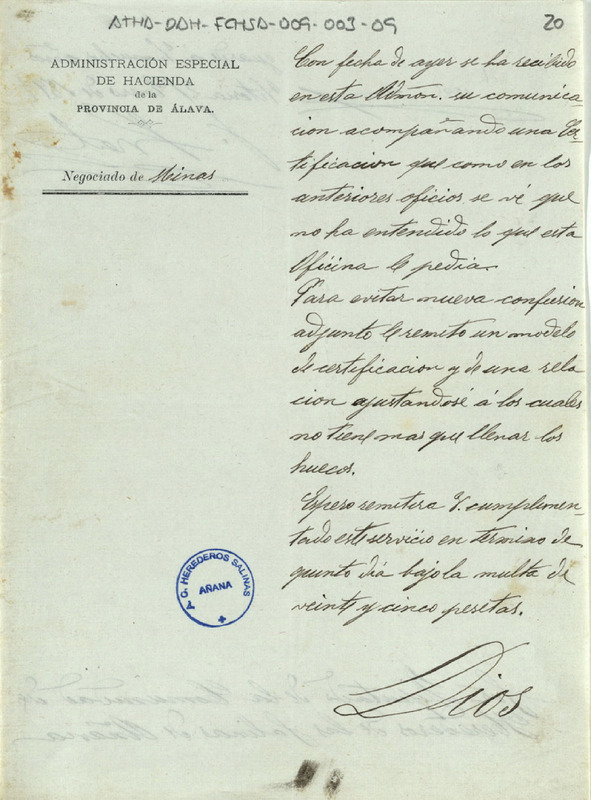 ATHA-DAH-FCHSA-009-003-09
20
ADMINISTRACIÓN ESPECIAL
DE HACIENDA
de la
PROVINCIA DE ÁLAVA.
Negociado de Minas
Con fecha de ayer se ha recibido
en esta Admón. su comunica
cion acompañando una Cer-
tificacion que como en los
anteriores oficios se vé que
no ha entendido lo que esta
Oficina le pedia.
Para evitar nueva confusion
adjunto le remito un modelo
de certificacion y de una rela
cion ajustandosé á los cuales
no tiene mas que llenar los
huecos.
Espero remitira V. cumplimen-
tado este servicio en termino de
quinto dia bajo la multa de
veint y cinco pesetas.
Dios
C. HEREDEROS SALINAS
AÑANA